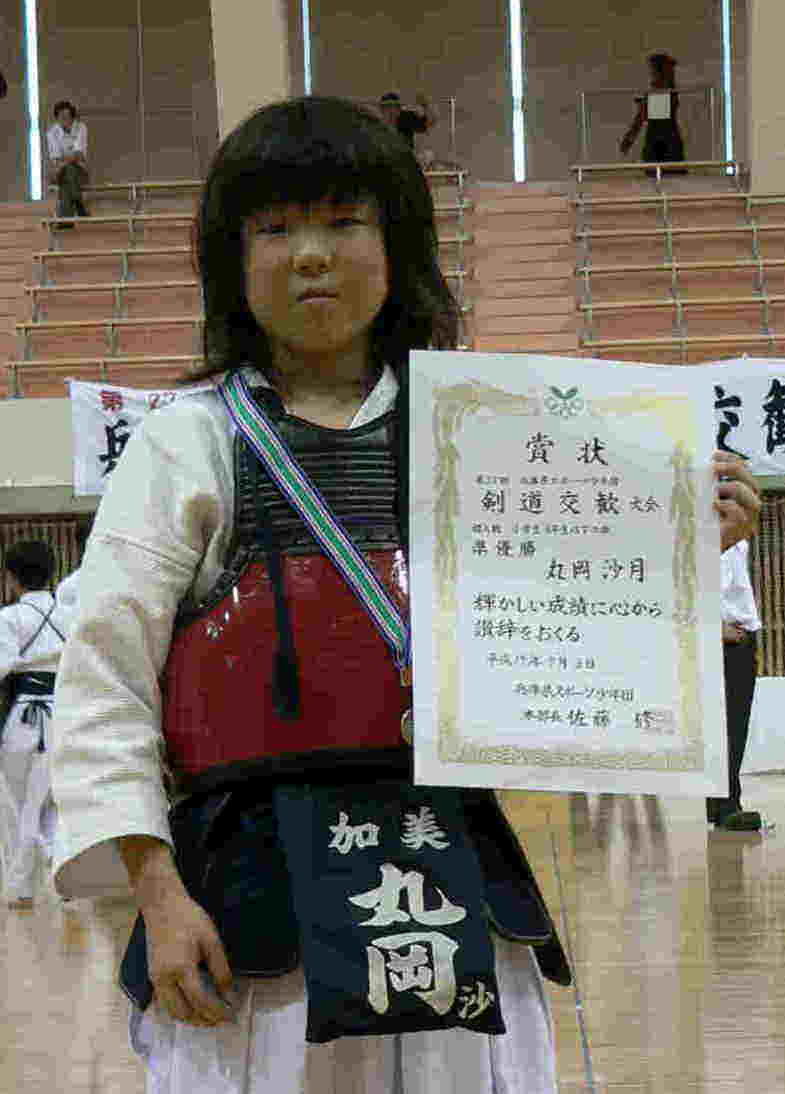 第27
兵
交歓
賞状
第27回 兵庫県スポーツ少年団
剣道交歓大会
個人戦 小学生4年生以下の部
準優勝
丸岡 沙月
輝かしい成績に心から
讃辞をおくる
平成17年7月3日
兵庫県スポーツ少年団
本部長 佐藤 修
加美
丸岡
沙